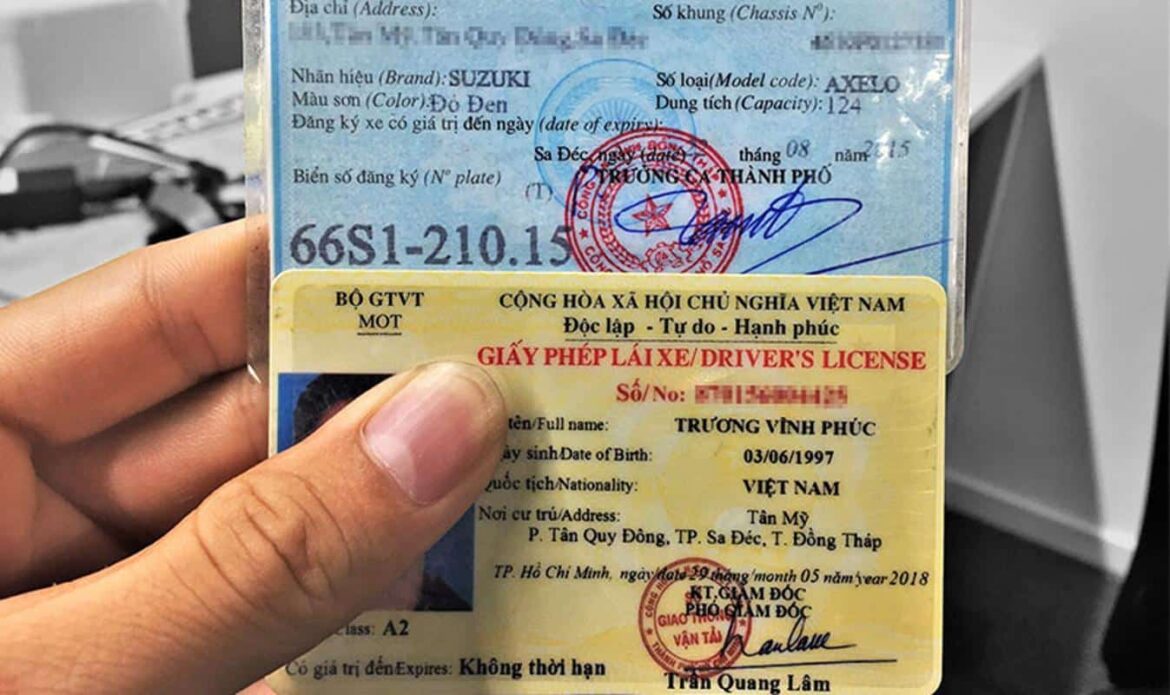 Địa chỉ (Address):
Số khung (Chassis Nº):
Nhãn hiệu (Brand): SUZUKI
Số loại(Model code): AXELO
Màu sơn (Color): Đỏ Đen
Dung tích (Capacity): 124
Đăng ký xe có giá trị đến ngày (date of expiry):
Sa Đéc, ngày (date) tháng 08 năm 2015
Biển số đăng ký (Nº plate)
(T) TRƯỞNG CA THÀNH PHỐ
66S1-210.15
BỘ GTVT
MOT
CỘNG HÒA XÃ HỘI CHỦ NGHĨA VIỆT NAM
Độc lập - Tự do - Hạnh phúc
GIẤY PHÉP LÁI XE/DRIVER'S LICENSE
Số/No:
tên/Full name: TRƯƠNG VĨNH PHÚC
sinh/Date of Birth: 03/06/1997
Quốc tịch/Nationality: VIỆT NAM
Nơi cư trú/Address: Tân Mỹ
P. Tân Quy Đông, TP. Sa Đéc, T. Đồng Tháp
TP. Hồ Chí Minh, ngày/date 29 tháng/month 05 năm/year 2018
KT.GIÁM ĐỐC
PHÓ GIÁM ĐỐC
GIAO THÔNG
VẬN TẢI
A2
Có giá trị đến/Expires: Không thời hạn
Trần Quang Lâm